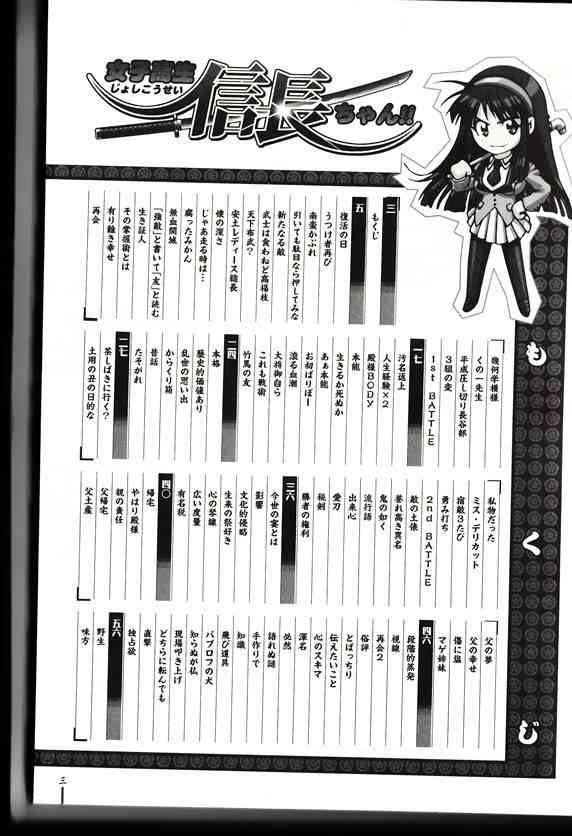 女子高生
じょしこうせい
信長
ちゃん!!
もくじ
三
もくじ
五
復活の日
うつけ者再び
南蛮かぶれ
引いても駄目なら押してみな
新たなる敵
武士は食わねど高楊枝
天下布武?
安土レディース総長
懐の深さ
じゃあ走る時は…
腐ったみかん
無血開城
「強敵」と書いて「友」と読む
生き証人
その掌握術とは
有り難き幸せ
再会
幾何学模様
くの一先生
平成圧し切り長谷部
3組の変
1st BATTLE
一七
汚名返上
人生経験×2
殿様BODY
本能
生きるか死ぬか
あぁ本能
お初ぱりぽー
滾る血潮
大将御自ら
これも戦術
竹馬の友
二四
本格
歴史的価値あり
乱世の思い出
からくり箱
昔話
たそがれ
二七
茶しばきに行く?
土用の丑の日的な
私物だった
ミス・デリカット
宿敵3たび
勇み打ち
2nd BATTLE
敵の土俵
誉れ高き異名
鬼の如く
流行語
出来心
愛刀
秘剣
勝者の権利
三六
今世の宴とは
影響
文化的侵略
生来の祭好き
心の琴線
広い度量
有名税
四〇
帰宅
やはり殿様
親の責任
父帰宅
父土産
父の夢
父の幸せ
傷に塩
マゲ姉妹
四六
段階的蒸発
視線
再会2
俗評
とばっちり
伝えたいこと
心のスキマ
渾名
必然
語れぬ謎
手作りで
知識
飛び道具
パブロフの犬
知らぬが仏
現場叩き上げ
どちらに転んでも
直撃
独占欲
五六
野生
味方
三